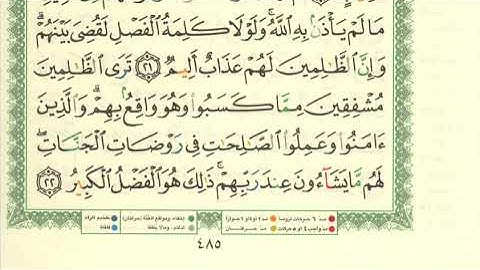 مَا لَمْ يَأْذَنۢ بِهِ ٱللَّهُۚ وَلَوْلَا كَلِمَةُ ٱلْفَصْلِ لَقُضِىَ بَيْنَهُمْۗ
وَإِنَّ ٱلظَّٰلِمِينَ لَهُمْ عَذَابٌ أَلِيمٌ ۝٢١ تَرَى ٱلظَّٰلِمِينَ
مُشْفِقِينَ مِمَّا كَسَبُوا۟ وَهُوَ وَاقِعٌۢ بِهِمْۗ وَٱلَّذِينَ
ءَامَنُوا۟ وَعَمِلُوا۟ ٱلصَّٰلِحَٰتِ فِى رَوْضَاتِ ٱلْجَنَّاتِۖ
لَهُم مَّا يَشَآءُونَ عِندَ رَبِّهِمْۚ ذَٰلِكَ هُوَ ٱلْفَضْلُ ٱلْكَبِيرُ ۝٢٢
٤٨٥